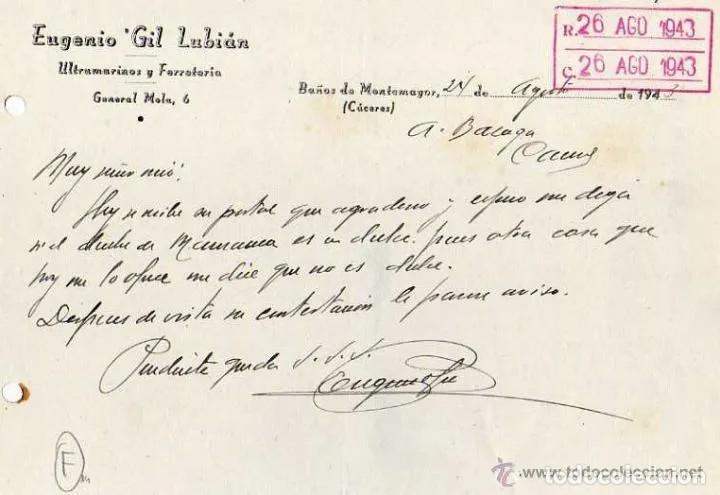 Eugenio Gil Lubián
Ultramarinos y Ferretería
General Mola, 6
R. 26 AGO 1943
C. 26 AGO 1943
Baños de Montemayor, 24 de Agosto de 1943
(Cáceres)
A. Balaga
Muy señor mío:
Hoy recibo su postal que agradezco y espero me diga
si el dulce de Manzana es un dulce. pues otra casa que
hoy me lo ofrece me dice que no es dulce.
Despues de vista su contestación le pasare aviso.
queda S. S. S.
Eugenio Gil
F
www.todocoleccion.net